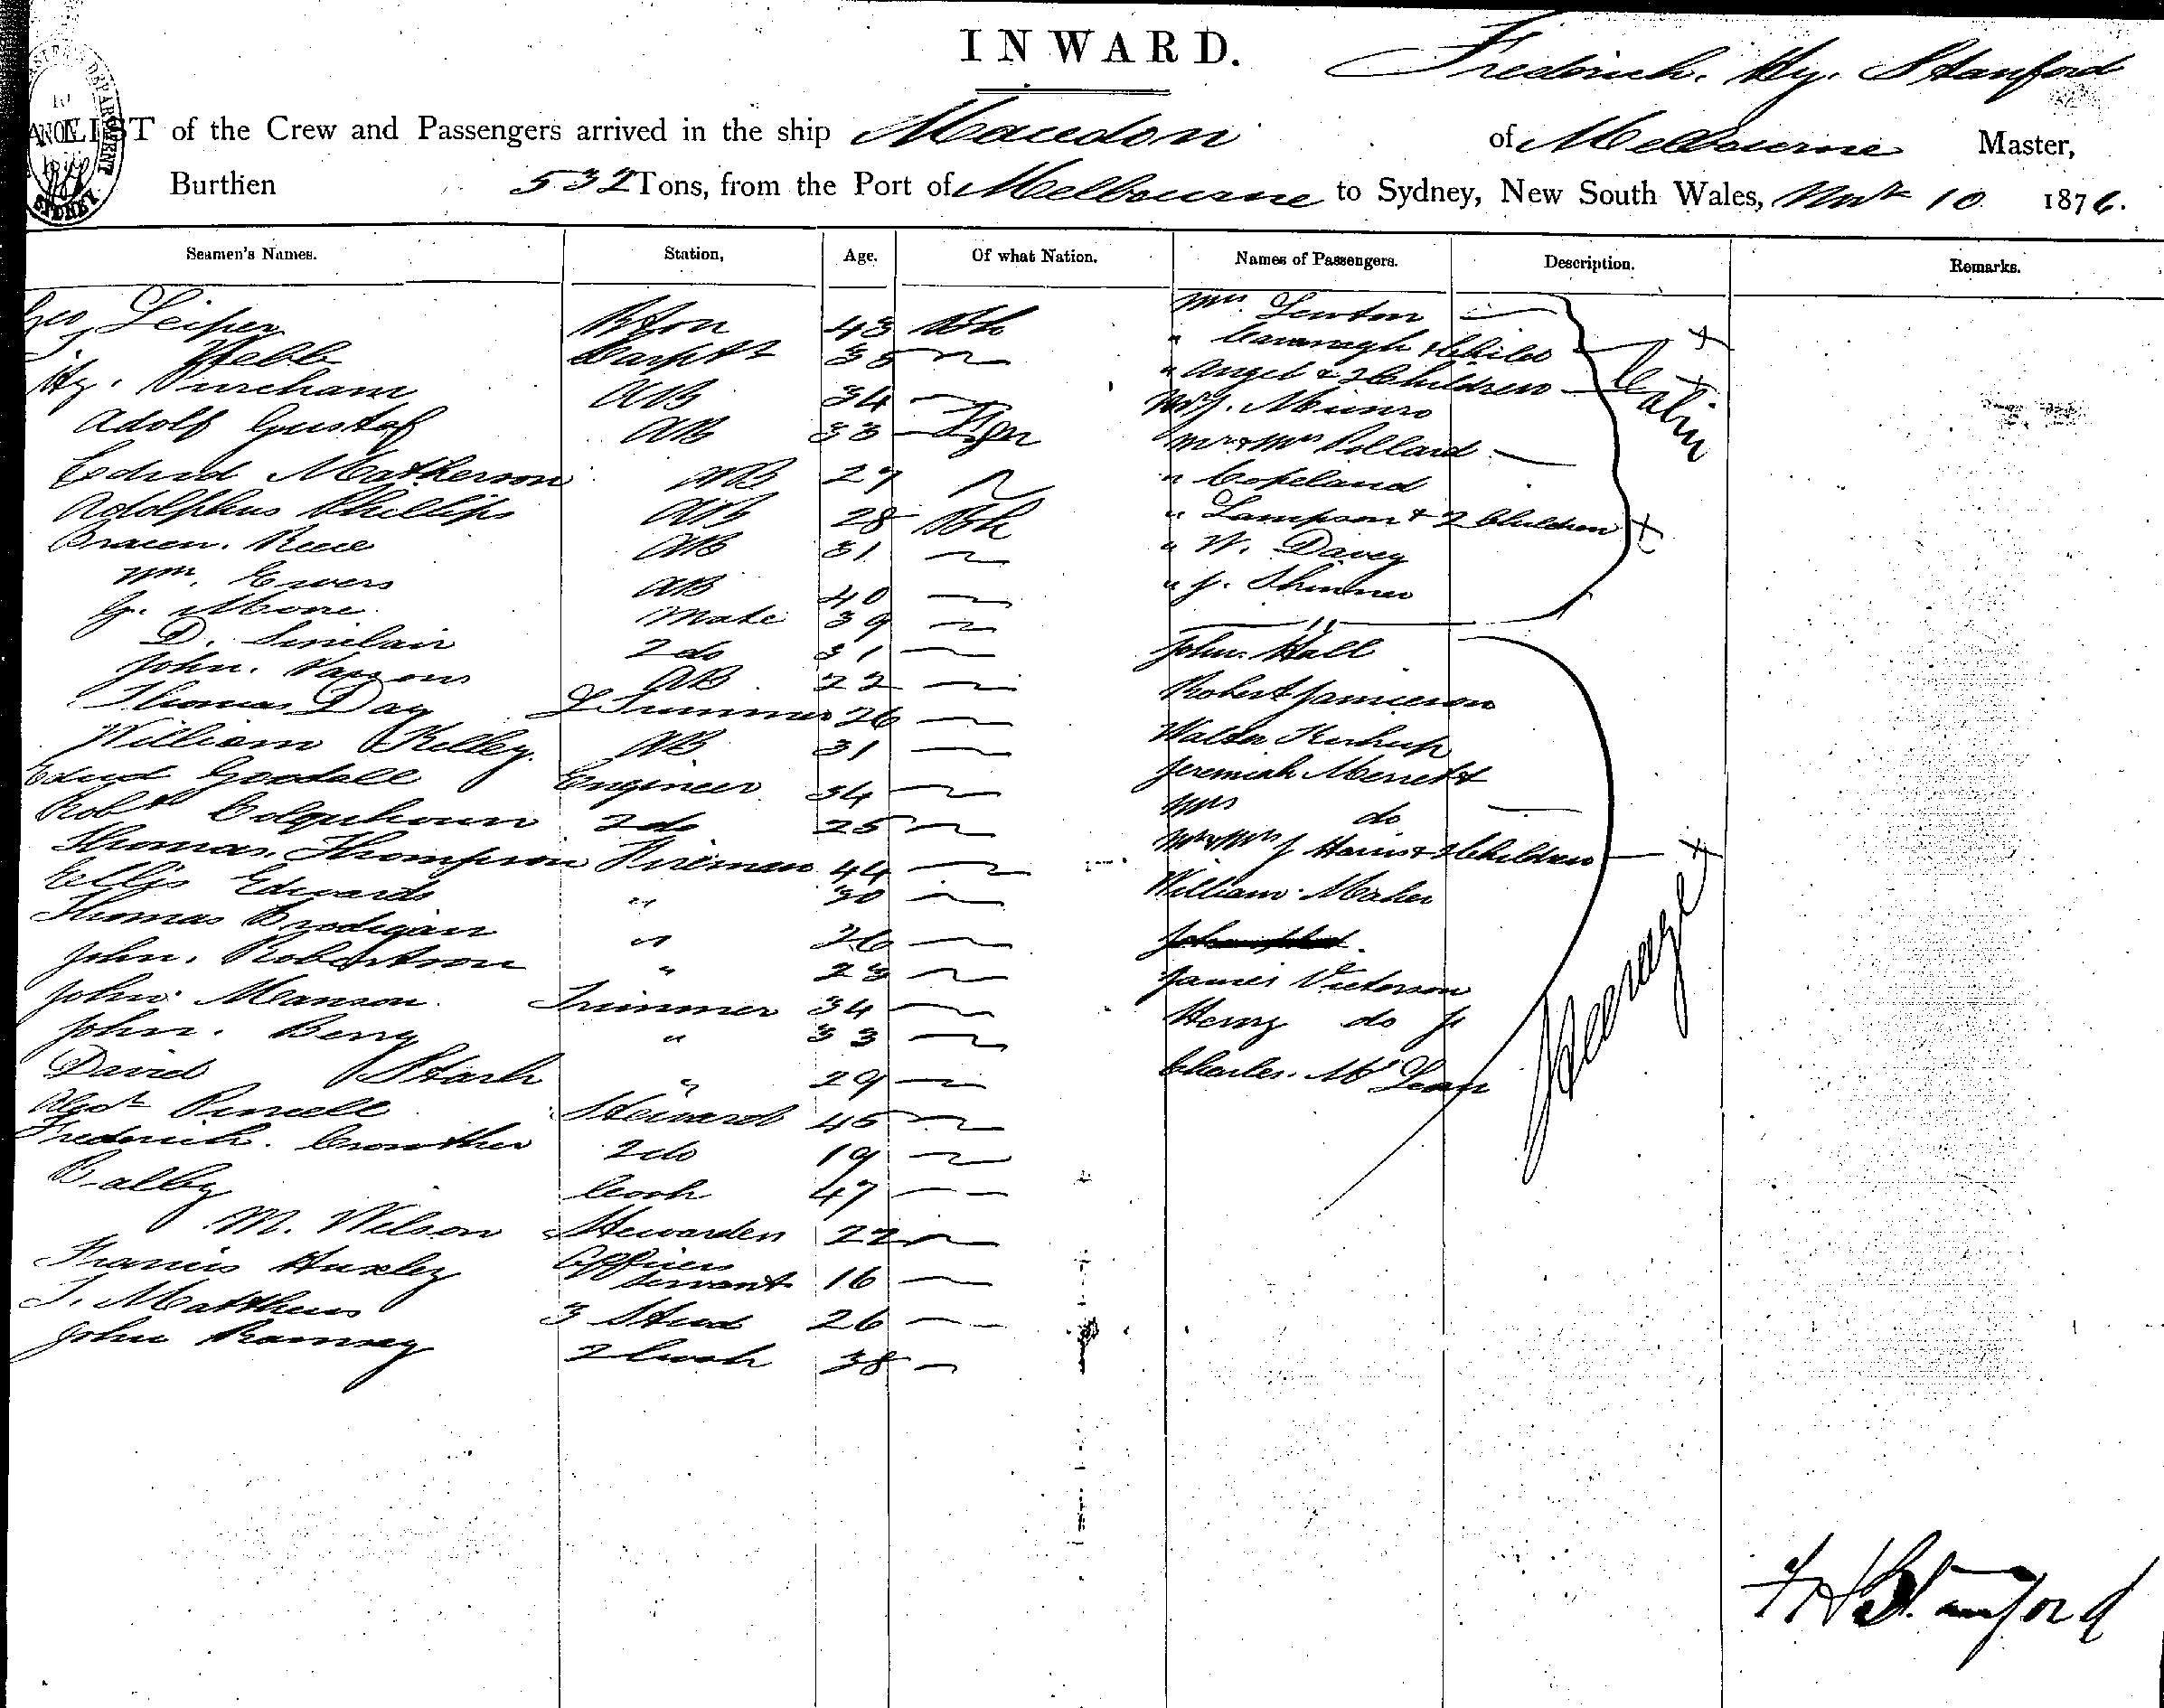 INWARD.
Frederick. Hy. Stanford
LIST of the Crew and Passengers arrived in the ship Macedon of Melbourne Master,
Burthen 532 Tons, from the Port of Melbourne to Sydney, New South Wales, 10 1876.
Seamen's Names. Station, Age. Of what Nation. Names of Passengers. Description. Remarks.
Geo Leiper 43 Bh Mrs. Lenton
Webb Carptr 35 " Cavanagh & Child
Hy. Purcham AB 34 " Angel & 2 Children
Adolf Gustaf AB 33 Fgn Munro
Edwd Matherson AB 27 Mr & Mrs Pollard
Adolphus Phillips AB 28 Bh " Copeland
AB 31 " Lampson & 2 Children
Wm. Ewers AB 40 " W. Davey
G. Mate 39 " J.
D. Sinclair 2 do 31 John. Hall
John. AB 22 Robert Jamieson
Thomas Day 26 Walter
William Kelley. AB 31 Jeremiah Merrett
Edwd Goodall Engineer 34 Mrs do
Robt Colquhoun 2 do 25 Mr & Mrs J Harris & 2 Children
Thomas. Thompson Fireman 44 William. Maher
Ellis Edwards " 30
Thomas Brodigan " 26
John. Robertson " 23 James Victorson
John. Manson. Trimmer 34 Henry do Jr
John. Berry " 33
David Stark " 29 Charles. McLean
Purcell Steward 45
Frederick. Crowther 2 do 19
Balby Cook 47
M. Wilson Stewardess 22
Francis Huxley Officers servant 16
T. Matthews 3 Stwd 26
John Ramsey 2 Cook 38
Cabin
Steerage
FH Stanford